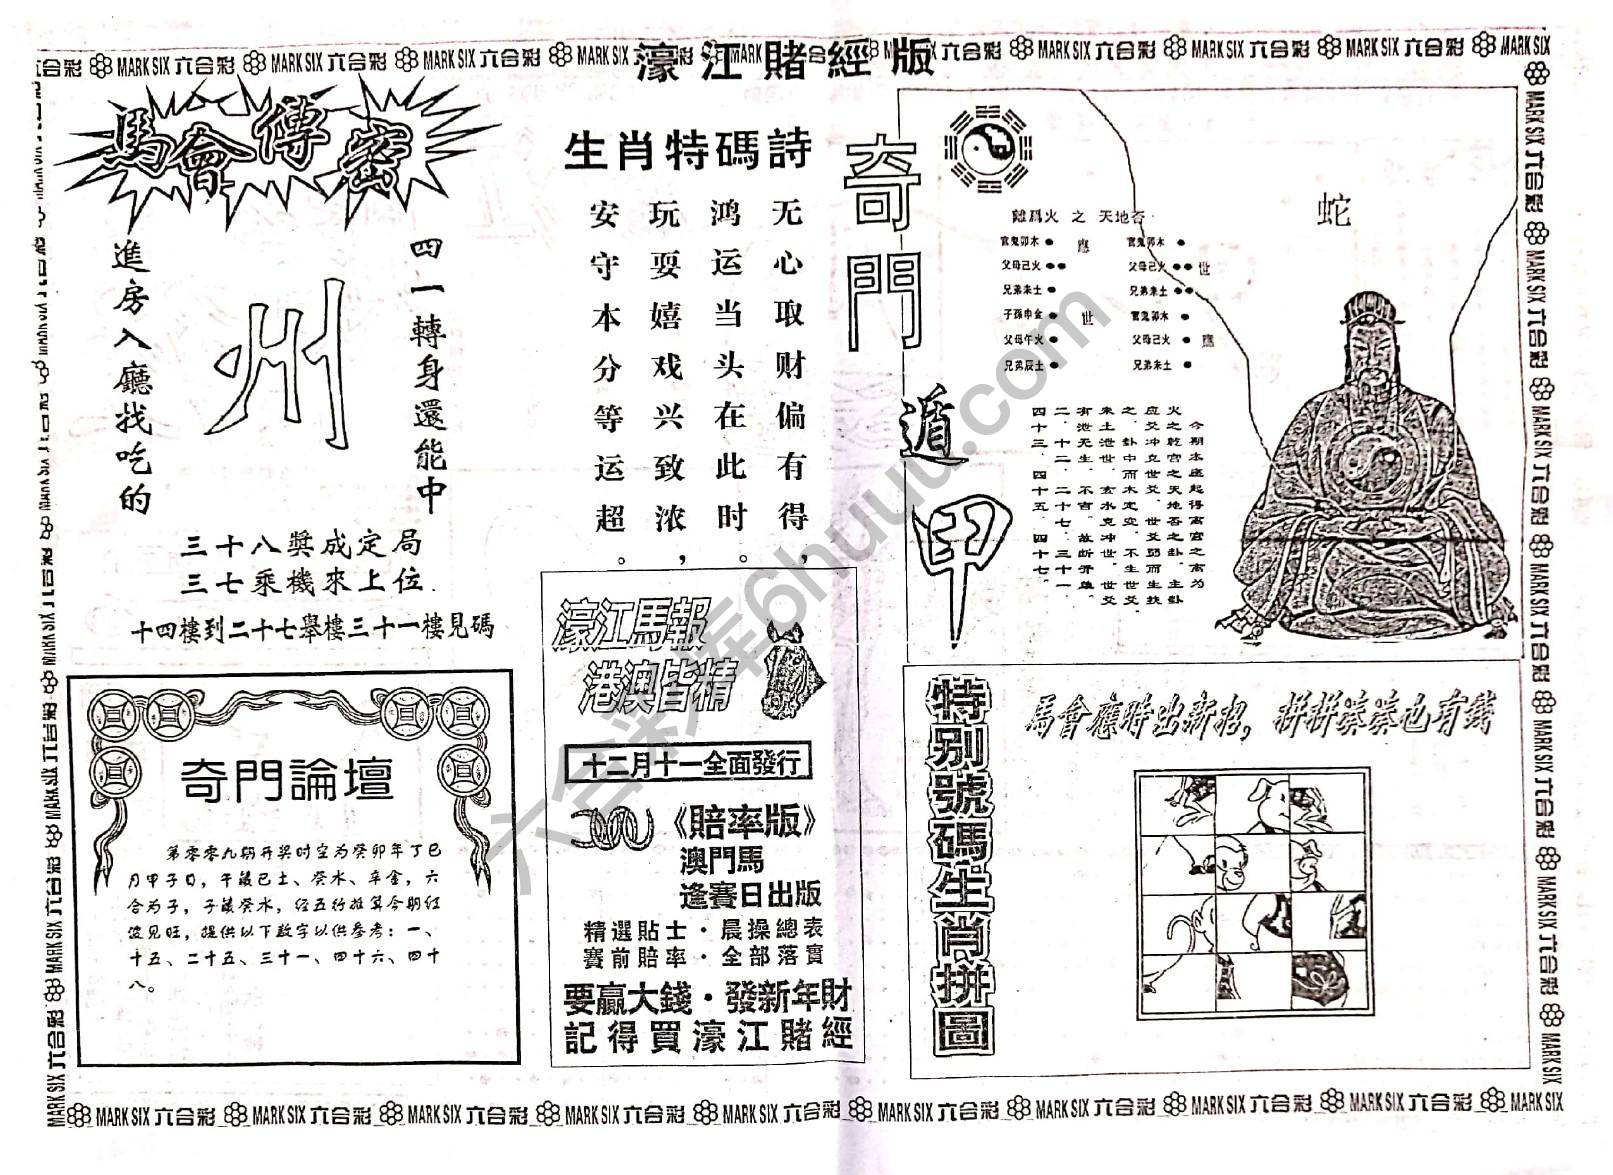 濠江賭經版
六合彩 MARK SIX 六合彩 MARK SIX 六合彩 MARK SIX 六合彩 MARK SIX
馬會傳密
四一轉身還能中
州
進房入廳找吃的
三十八獎成定局
三七乘機來上位
十四樓到二十七舉樓三十一樓見碼
生肖特碼詩
无心取财偏有得，
鸿运当头在此时。
玩耍嬉戏兴致浓，
安守本分等运超。
奇門遁甲
離爲火 之 天地否
官鬼卯木 應 官鬼卯木
父母己火 父母己火 世
兄弟未土 兄弟未土
子孫申金 世 官鬼卯木
父母午火 父母己火 應
兄弟辰土 兄弟未土
蛇
今期本座起得离宫之离为
火之乾宫之天地否之卦，主卦
应爻冲克世爻，世爻弱而生扶
之，卦中而木定空，不生世爻，
未土泄世，玄水克冲世，世爻
有泄无生，不吉，故断开雄
二、十二、二十七、三十一
四十三、四十五、四十七。
奇門論壇
第零零九期开奖时空为癸卯年丁巳
月甲子日，午藏已土、癸水、辛金，六
合为子，子藏癸水，经五行推算今期红
波见旺，提供以下数字以供参考：一、
十五、二十五、三十一、四十六、四十
八。
濠江馬報
港澳皆精
十二月十一全面發行
《賠率版》
澳門馬
逢賽日出版
精選貼士·晨操總表
賽前賠率·全部落實
要贏大錢·發新年財
記得買濠江賭經
特别號碼生肖拼圖
馬會應時出新招，拼拼湊湊也有錢
MARK SIX 六合彩 MARK SIX 六合彩 MARK SIX 六合彩 MARK SIX 六合彩 MARK SIX 六合彩 MARK SIX 六合彩 MARK SIX 六合彩 MARK SIX 六合彩 MARK SIX 六合彩 MARK SIX
六合彩库6huuu.com